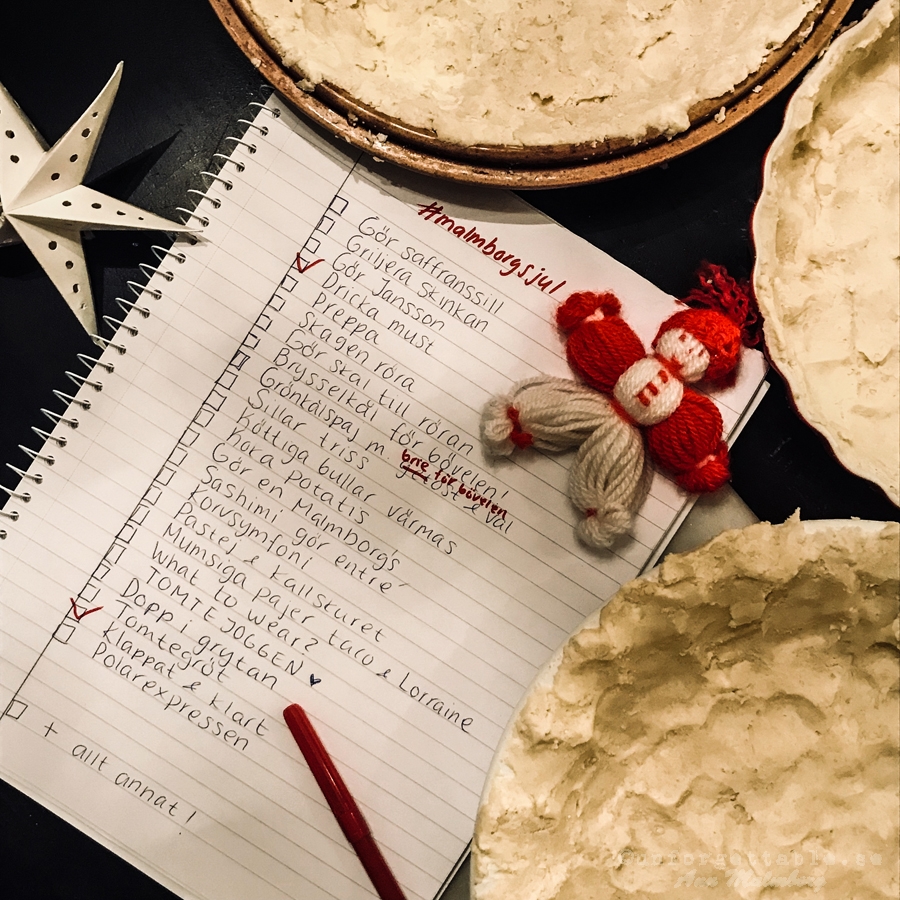 #malmborgsjul
Gör saffranssill
Griljera skinkan
Gör Jansson
Dricka must
Preppa
Skagen röra
Gör skal till röran
Brysselkål för böveln!
Grönkålspaj m getost & val
brie för böveln
Sillar triss
Köttiga bullar värmas
Koka potatis
Gör en Malmborg's
Sashimi gör entré
Korvsymfoni
Pastej & kallskuret
Mumsiga pajer taco & Lorraine
What to wear?
TOMTEJOGGEN
Dopp i grytan
Tomtegröt
Klappat & klart
Polarexpressen
+ allt annat!